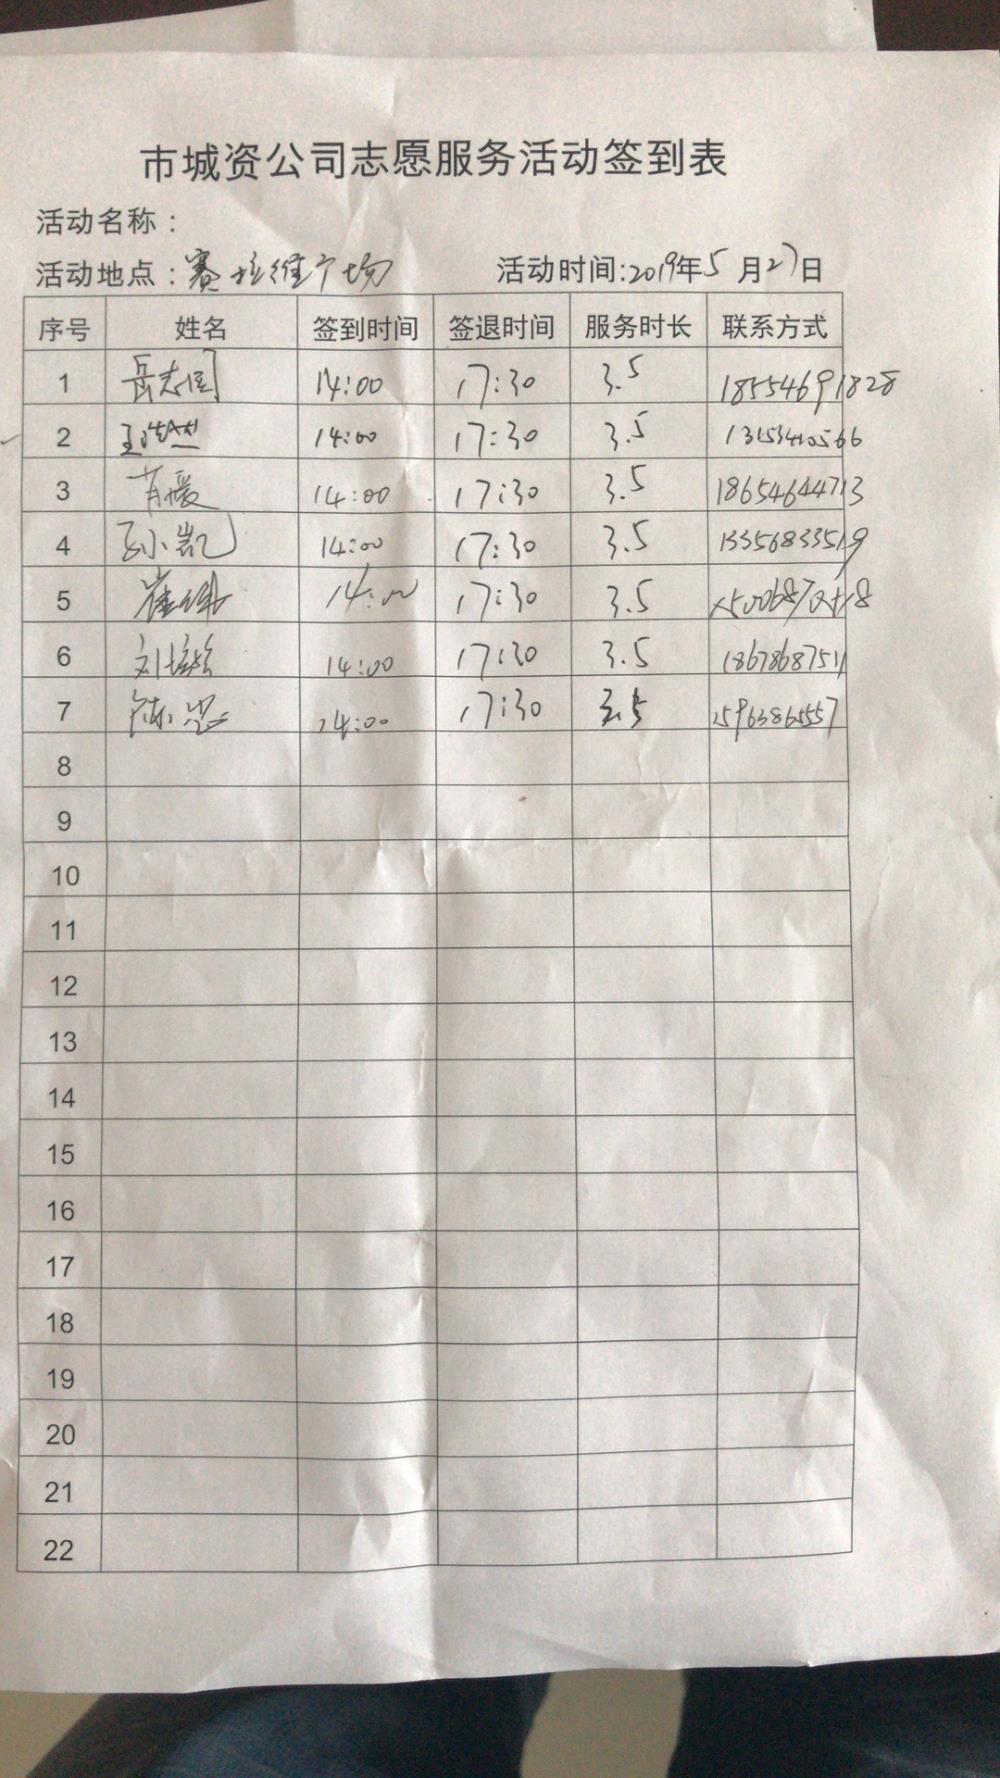 市城资公司志愿服务活动签到表
活动名称：
活动地点：赛拉维广场 活动时间:2019年5月27日
序号 姓名 签到时间 签退时间 服务时长 联系方式
1 14:00 17:30 3.5 18554691828
2 14:00 17:30 3.5
3 肖媛 14:00 17:30 3.5 18654644713
4 孙凯 14:00 17:30 3.5 13356833519
5 14:00 17:30 3.5
6 14:00 17:30 3.5 18678687511
7 14:00 17:30 3.5
8
9
10
11
12
13
14
15
16
17
18
19
20
21
22